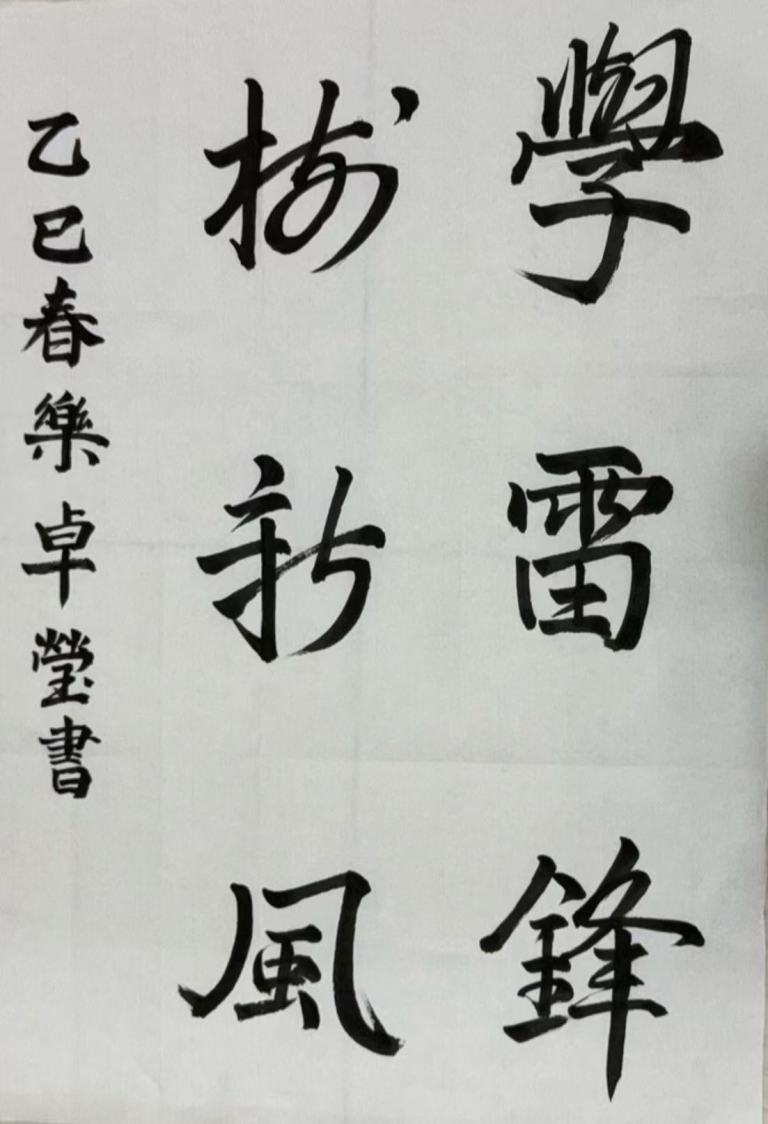 學雷鋒
樹新風
乙巳春樂卓瑩書